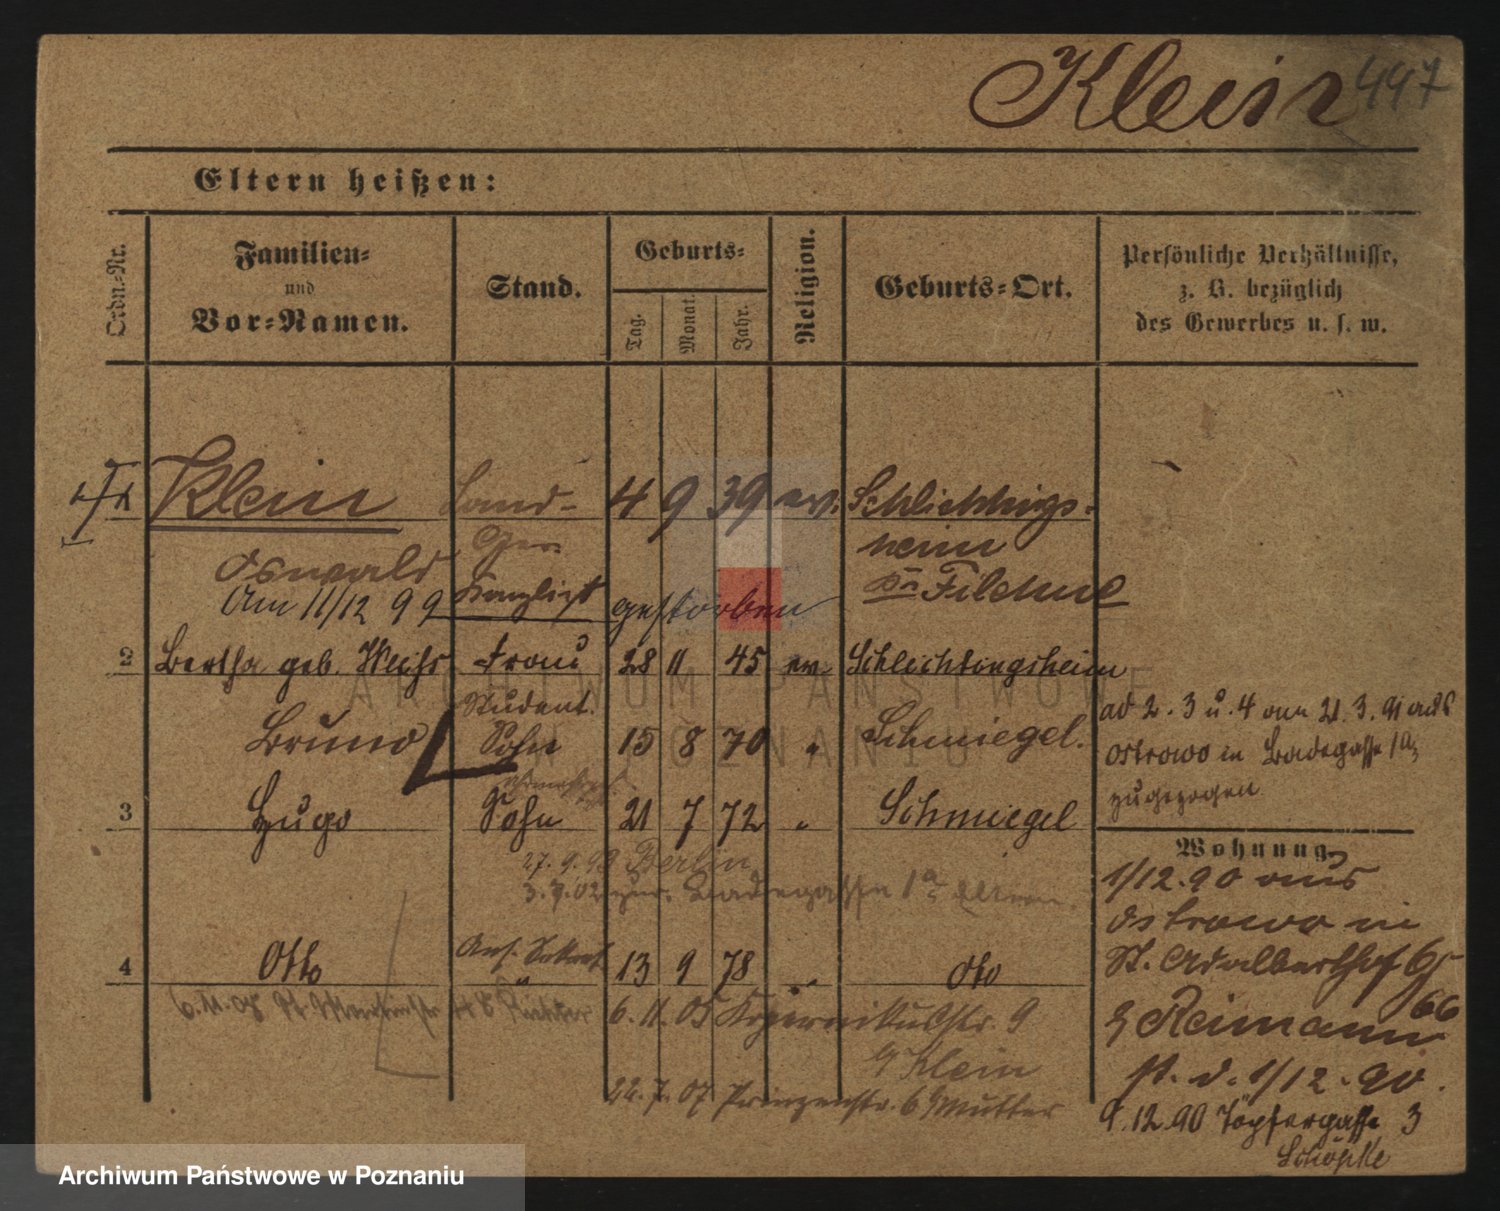 Klein 447
Eltern heißen:
Ordn.-Nr.
Familien-
und
Vor-Namen.
Stand.
Geburts-
Tag.
Monat.
Jahr.
Religion.
Geburts-Ort.
Persönliche Verhältnisse,
z. B. bezüglich
des Gewerbes u. s. w.
Klein Land- 4 9 39 ev. Schlichtings-
Ger. heim
Oswald Kanzlist Kr.
Am 11/12 99 gestorben
2 Bertha geb. Frau 28 11 45 ev. Schlichtingsheim
Student.
Bruno Sohn 15 8 70 " Schmiegel.
3 Hugo Sohn 21 7 72 " Schmiegel
27. 9. 98 Berlin
3. 7. 02 zur. Badegasse 1a
4 Otto 13 9 78 " dto
6. 11. 08 St. Martinstr.
6. 11. 05 9
b/ Klein
22. 7. 07 Prinzenstr. 6 b/ Mutter
ad 2. 3 u. 4 am 21. 3. 91 aus
Ostrowo in Badegasse 1a
zugezogen
Wohnung.
1/12. 90 aus
Ostrowo in
St. Adalberthof 6
b/ Reimann
st. d. 1/12. 90.
9. 12. 90 Töpfergasse 3
Schöpke
ARCHIWUM PAŃSTWOWE
W POZNANIU
Archiwum Państwowe w Poznaniu